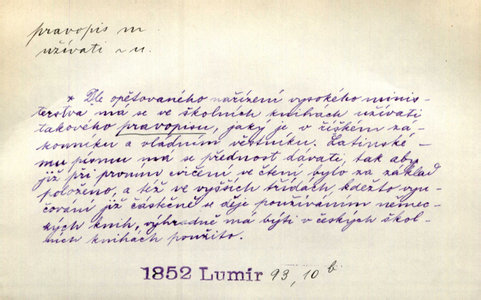 pravopis m
užívati ~ u.
* Dle opětovaného nařízení vysokého minis-
terstva má se ve školních knihách užívati
takového pravopisu, jaký je v říšském zá-
konníku a vládním věstníku. Latinské-
mu písmu má se přednost dávati, tak aby
již při prvním cvičení ve čtení bylo za základ
položeno, a též ve vyšších třídách, kdežto vyu-
čování již částečně se děje používáním němec-
kých knih, výhradně má býti v českých škol-
ních knihách použito.
1852 Lumír 93, 10 b